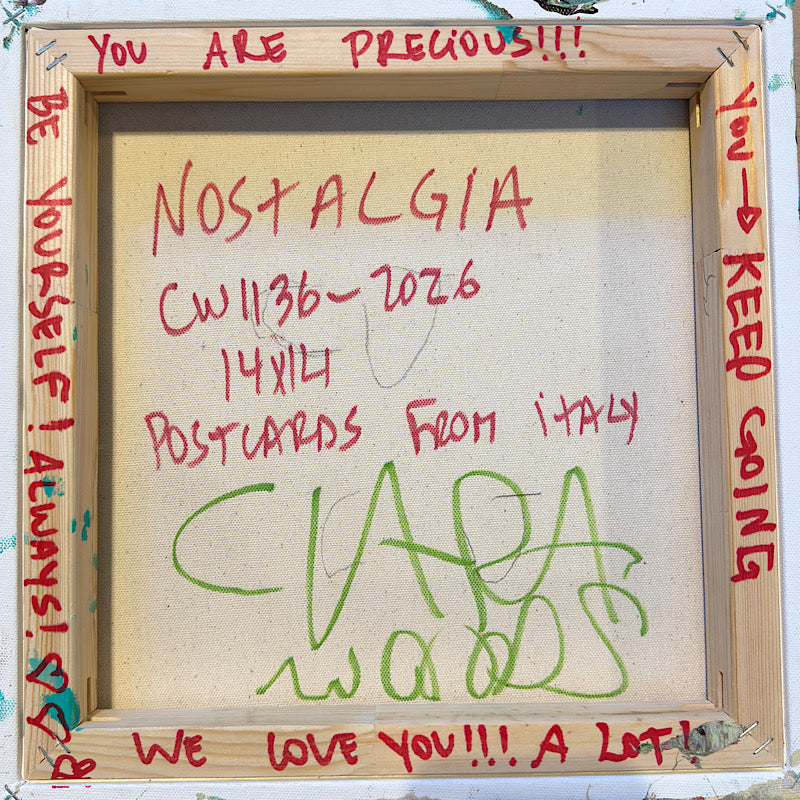 YOU ARE PRECIOUS!!!
YOU → KEEP GOING
NOSTALGIA
CW1136-2026
14X14
POSTCARDS FROM iTALY
CLARA
WOODS
BE YOURSELF! ALWAYS! ♡♡
WE LOVE YOU!!! A LOT!